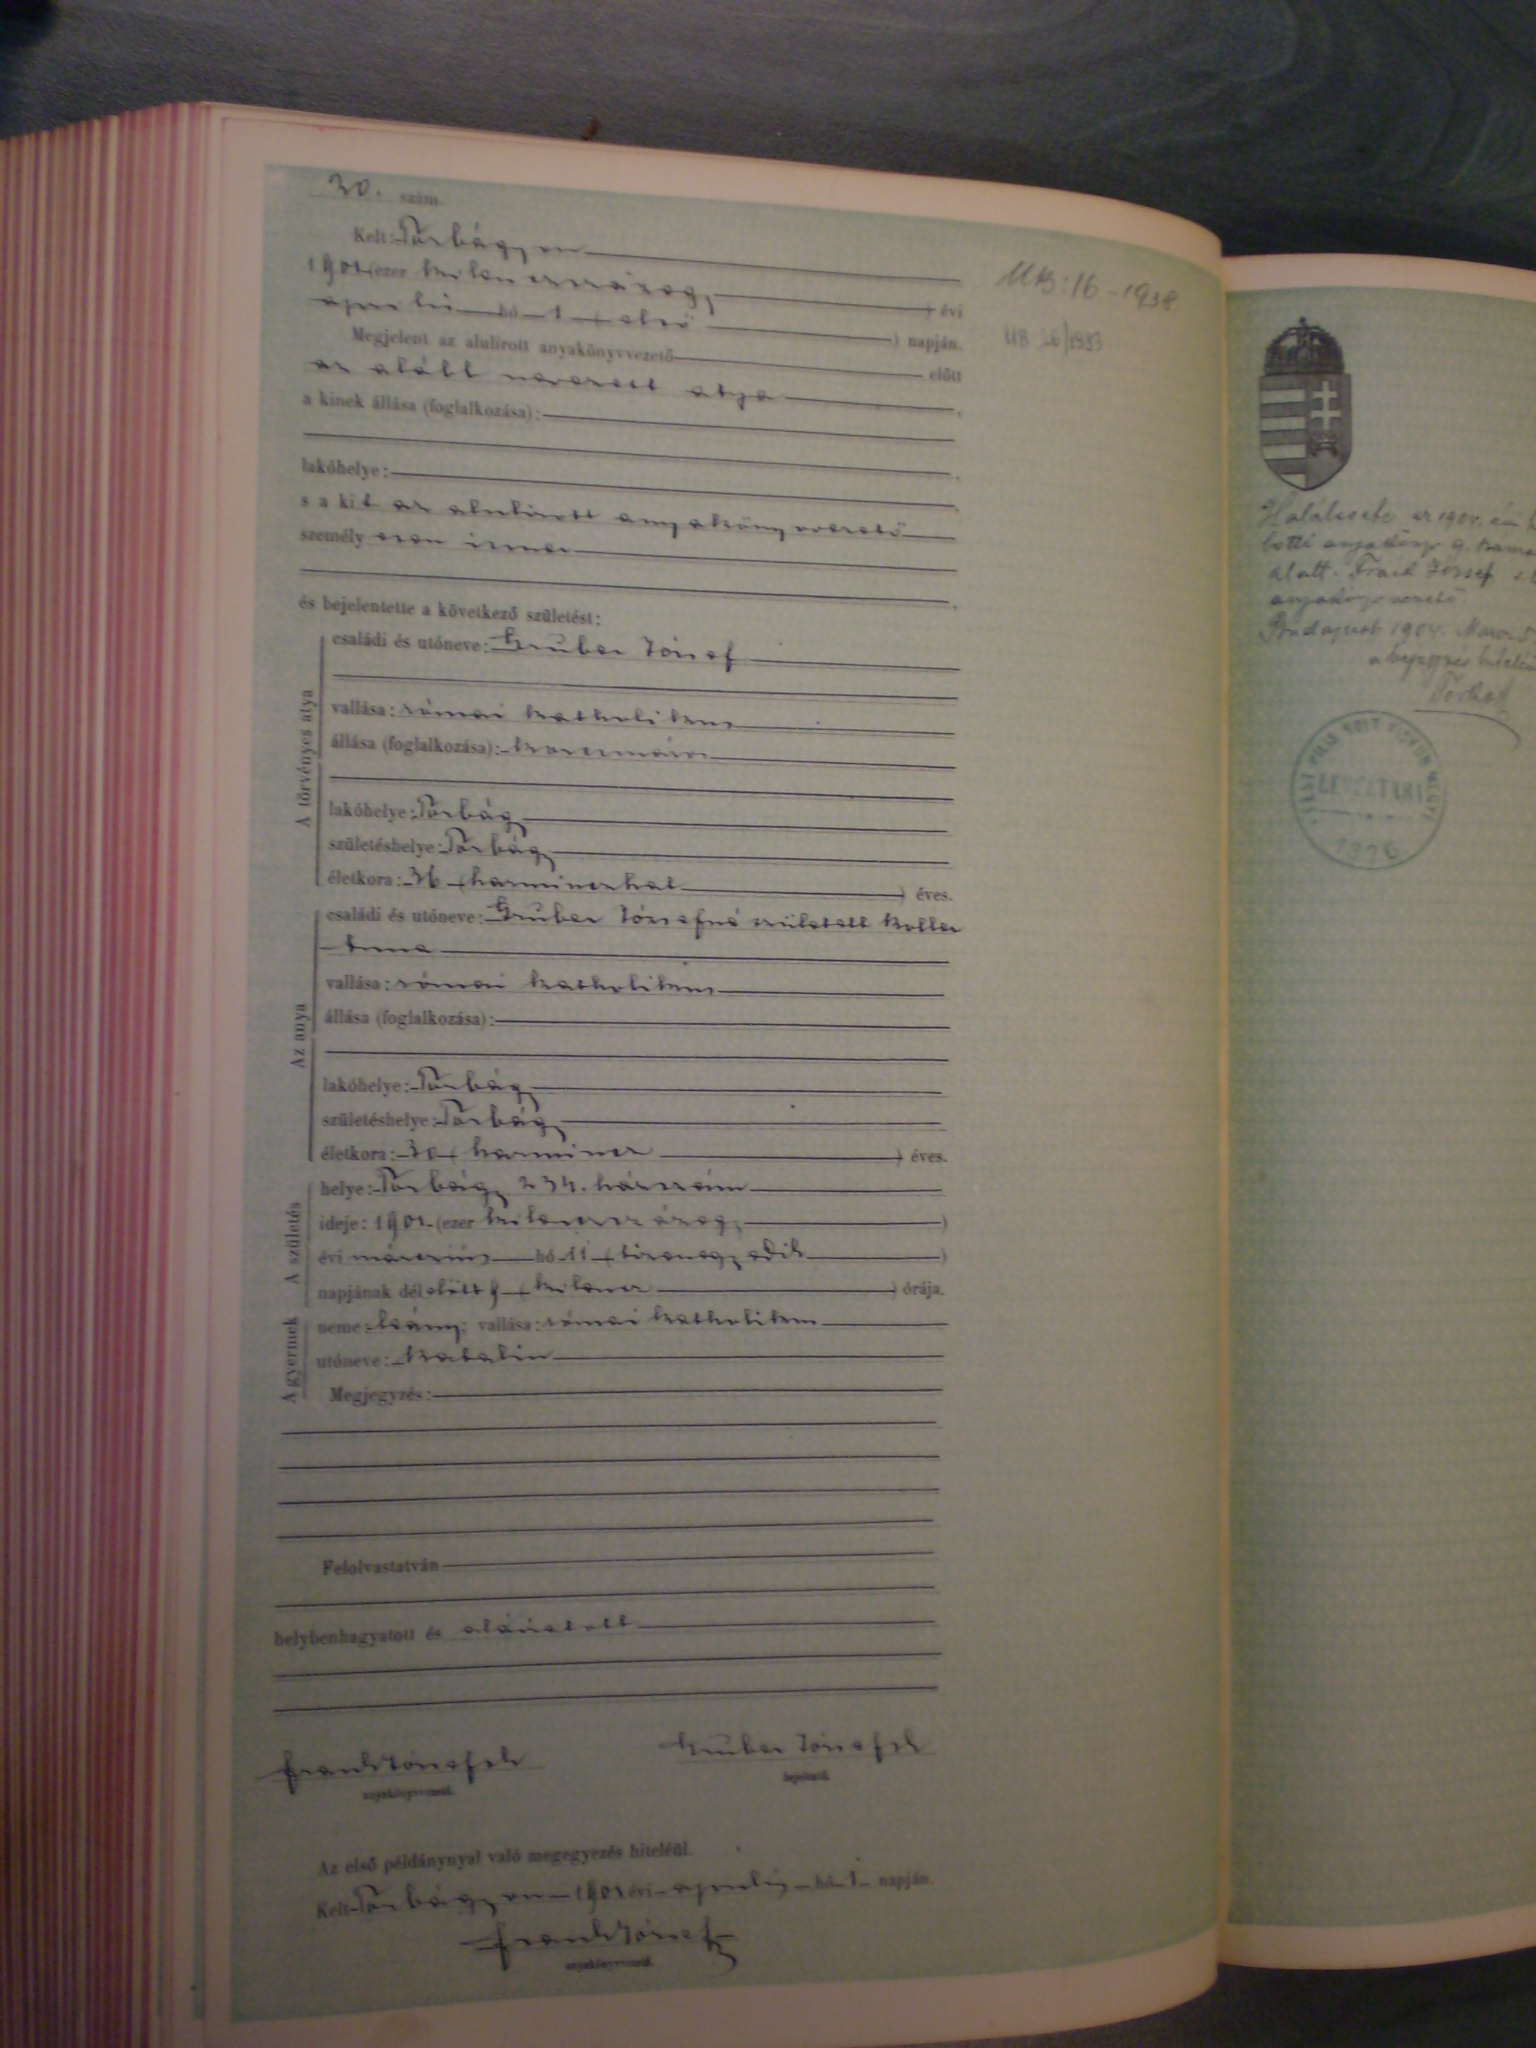 30. szám.
Kelt: Törbágyon
1901 (ezer kilenczszázegy ) évi
április hó 1 ( első ) napján.
Megjelent az alulirott anyakönyvvezető előtt
az alább nevezett atya ,
a kinek állása (foglalkozása):
lakóhelye: ,
s a kit az alulirott anyakönyvvezető
személyesen ismer ,
és bejelentette a következő születést:
A törvényes atya
családi és utóneve: Gruber József
vallása: római katholikus
állása (foglalkozása): korcsmáros
lakóhelye: Törbágy
születéshelye: Törbágy
életkora: 36 (harminczhat ) éves.
Az anya
családi és utóneve: Gruber Józsefné született Koller
Anna
vallása: római katholikus
állása (foglalkozása):
lakóhelye: Törbágy
születéshelye: Törbágy
életkora: 30 ( harmincz ) éves.
A születés
helye: Törbágy, 234. házszám
ideje: 1901 (ezer kilenczszázegy )
évi márczius hó 11 (tizenegyedik )
napjának délelőtt 9 ( kilencz ) órája.
A gyermek
neme: leány; vallása: római katholikus
utóneve: Katalin
Megjegyzés:
Felolvastatván
helybenhagyatott és aláíratott
Frank József sk
anyakönyvvezető.
Gruber József sk
bejelentő.
Az első példánynyal való megegyezés hiteléül.
Kelt Törbágyon 1901 évi április hó 1 napján.
Frank József
anyakönyvvezető.
UB: 16-1938
UB 26/1993
Halálesete az 1904. évi
anyakönyv 9.
alatt. Frank József s.k.
anyakönyvvezető.
Budapest, 1904.
a bejegyzés
LEVÉLTÁRI
1876